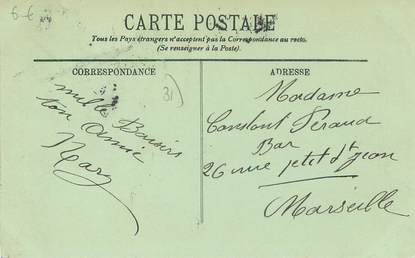 6-6
CARTE POSTALE
Tous les Pays étrangers n'acceptent pas la Correspondance au recto.
(Se renseigner à la Poste).
CORRESPONDANCE
ADRESSE
31
mille Baisers
ton amie
Madame
Constant Peraud
Bar
26 rue petit St Jean
Marseille